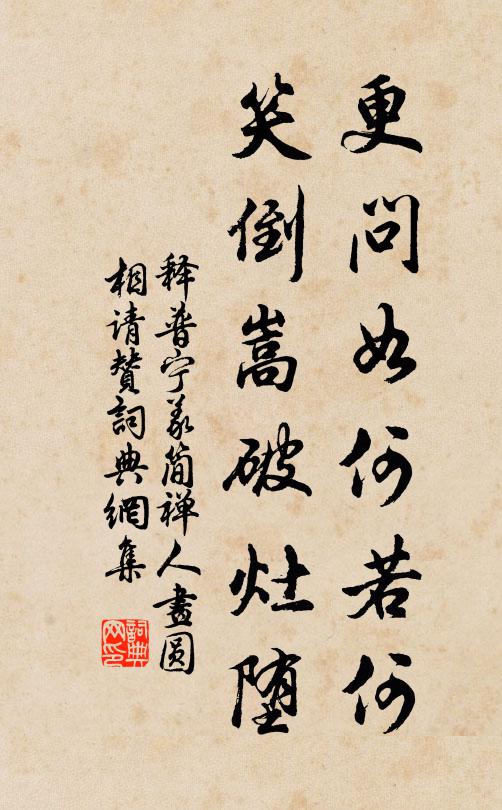 更问如何若何
笑倒嵩破灶堕
释普宁羕简禅人画圆
相请赞词典網集
詞典
网印